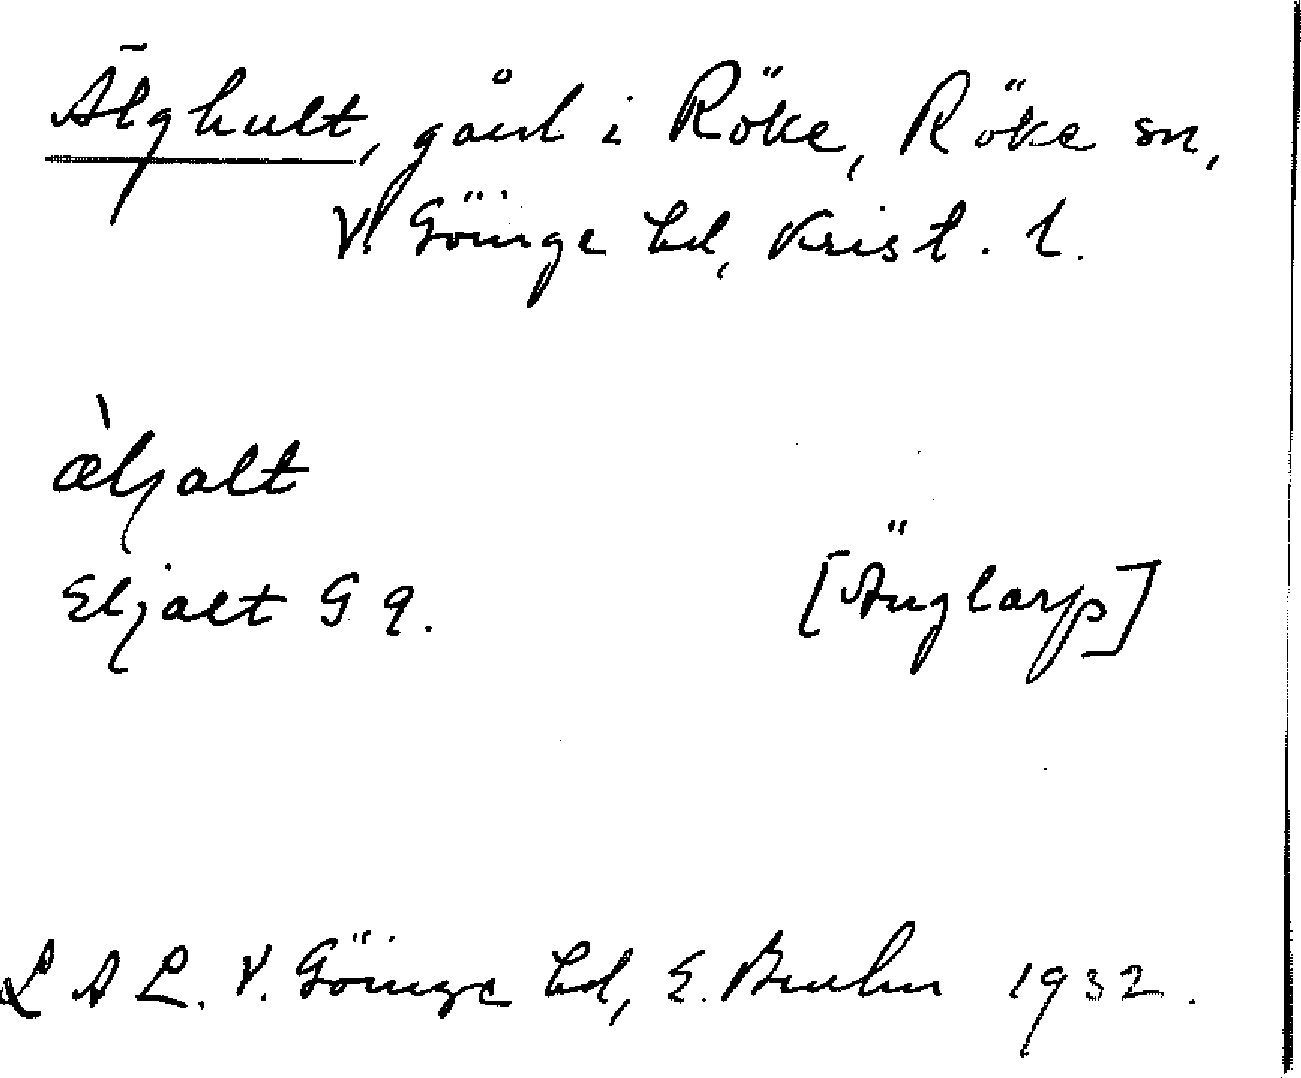 Älghult, gård i Röke, Röke sn,
V. Göinge hd, Krist. l.
æ̀ljalt
Eljalt G 9.
[Änglarp]
L A L. V. Göinge hd, E. Bruhn 1932.